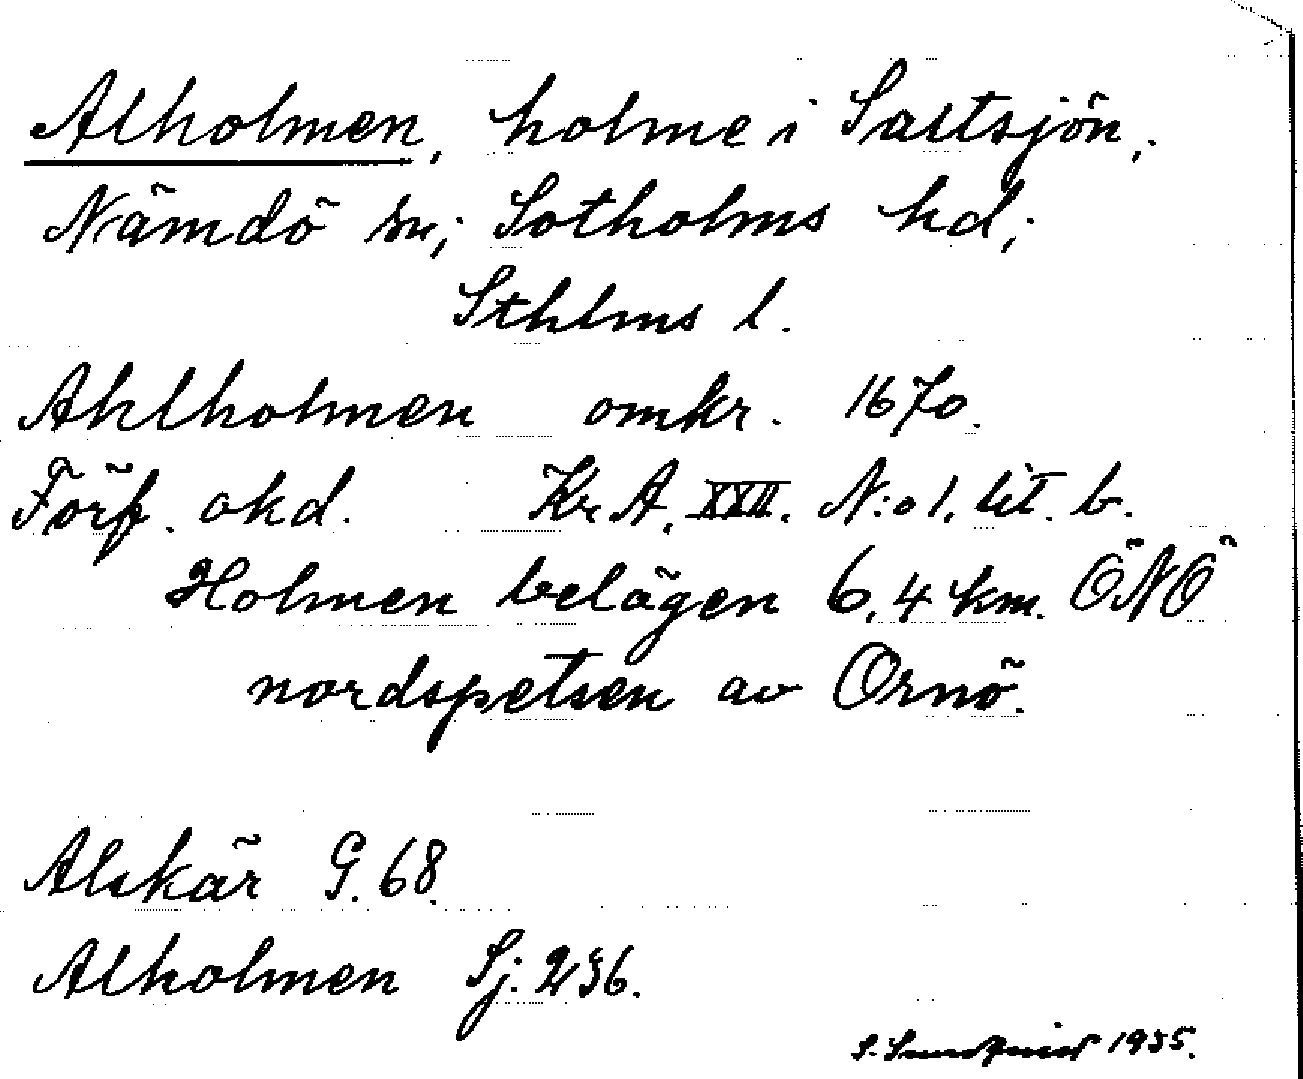 Alholmen, holme i Saltsjön,
Nämdö sn, Sotholms hd,
Sthlms l.
Ahlholmen omkr. 1670.
Förf. okd. Kr. A. XXII. N:o 1. lit. b.
Holmen belägen 6,4 km. ÖNÖ
nordspetsen av Ornö.
Alskär G. 68.
Alholmen Sj. 236.
S. Sundqvist 1935.